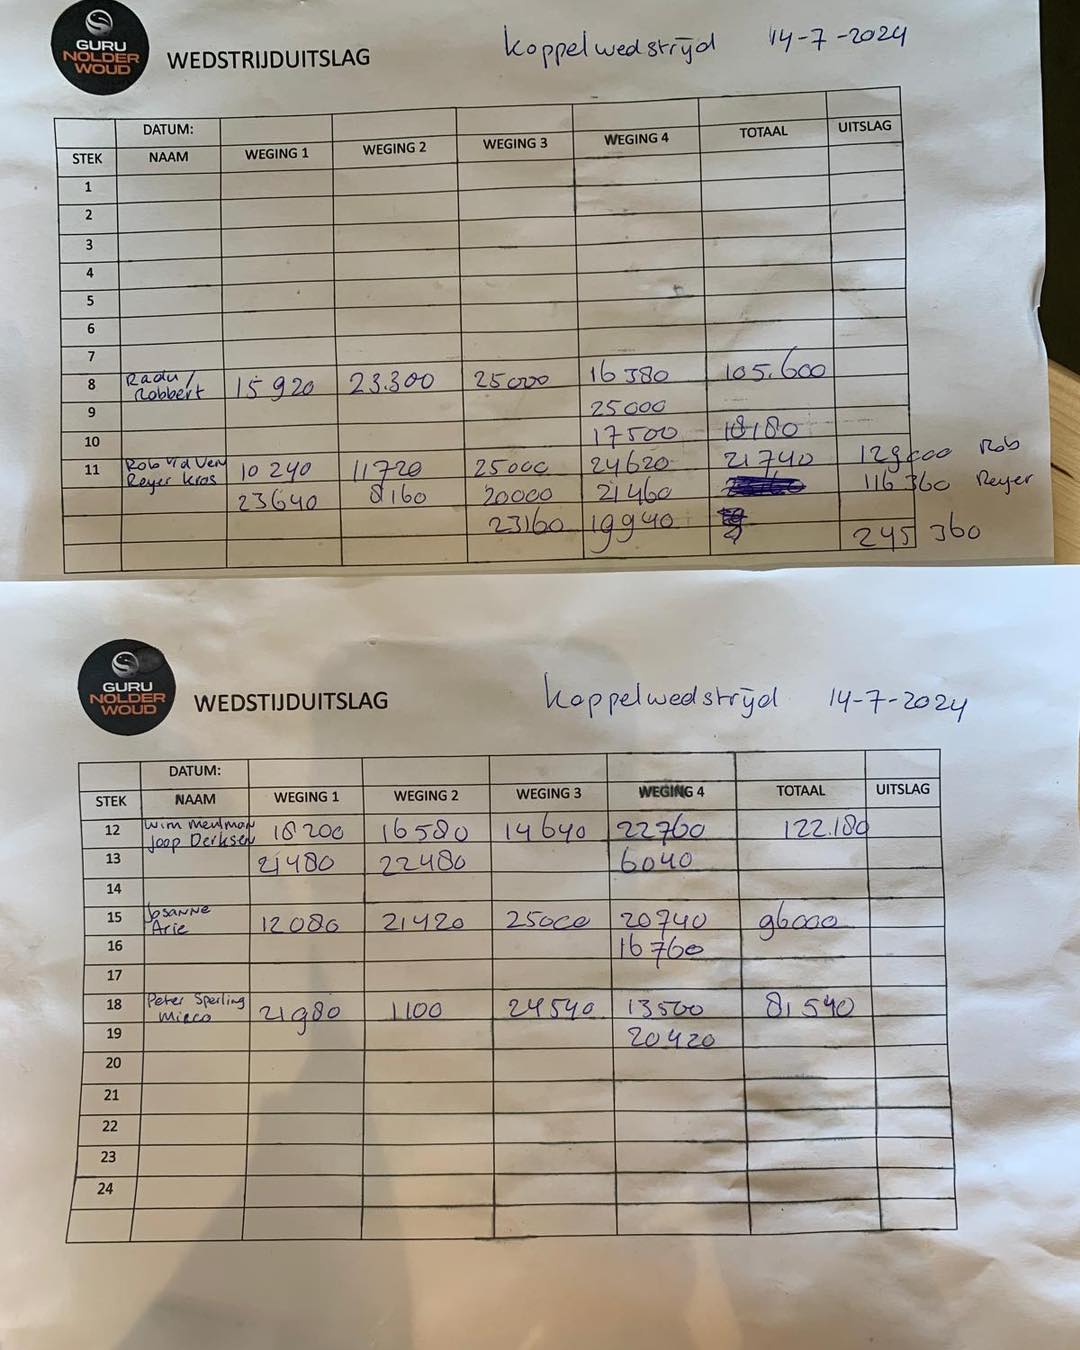 GURU
NOLDER
WOUD
WEDSTRIJDUITSLAG
Koppelwedstrijd 14-7-2024
DATUM:
STEK NAAM WEGING 1 WEGING 2 WEGING 3 WEGING 4 TOTAAL UITSLAG
1
2
3
4
5
6
7
8 Radu / Robbert 15920 23.300 25000 16380 105.600
9 25000
10 17500 18180
11 Rob v/d Ven Reyer Kras 10240 11720 25000 24620 21740 129000 Rob
23640 8160 20000 21460 116360 Reyer
23160 19940
245 360
GURU
NOLDER
WOUD
WEDSTIJDUITSLAG
Koppelwedstrijd 14-7-2024
DATUM:
STEK NAAM WEGING 1 WEGING 2 WEGING 3 WEGING 4 TOTAAL UITSLAG
12 Wim Meulman Joop Derksen 18200 16580 14640 22760 122.180
13 21480 22480 6040
14
15 Josanne Arie 12080 21420 25000 20740 96000
16 16760
17
18 Peter Sperling Mirco 21980 1100 24540 13500 81540
19 20420
20
21
22
23
24